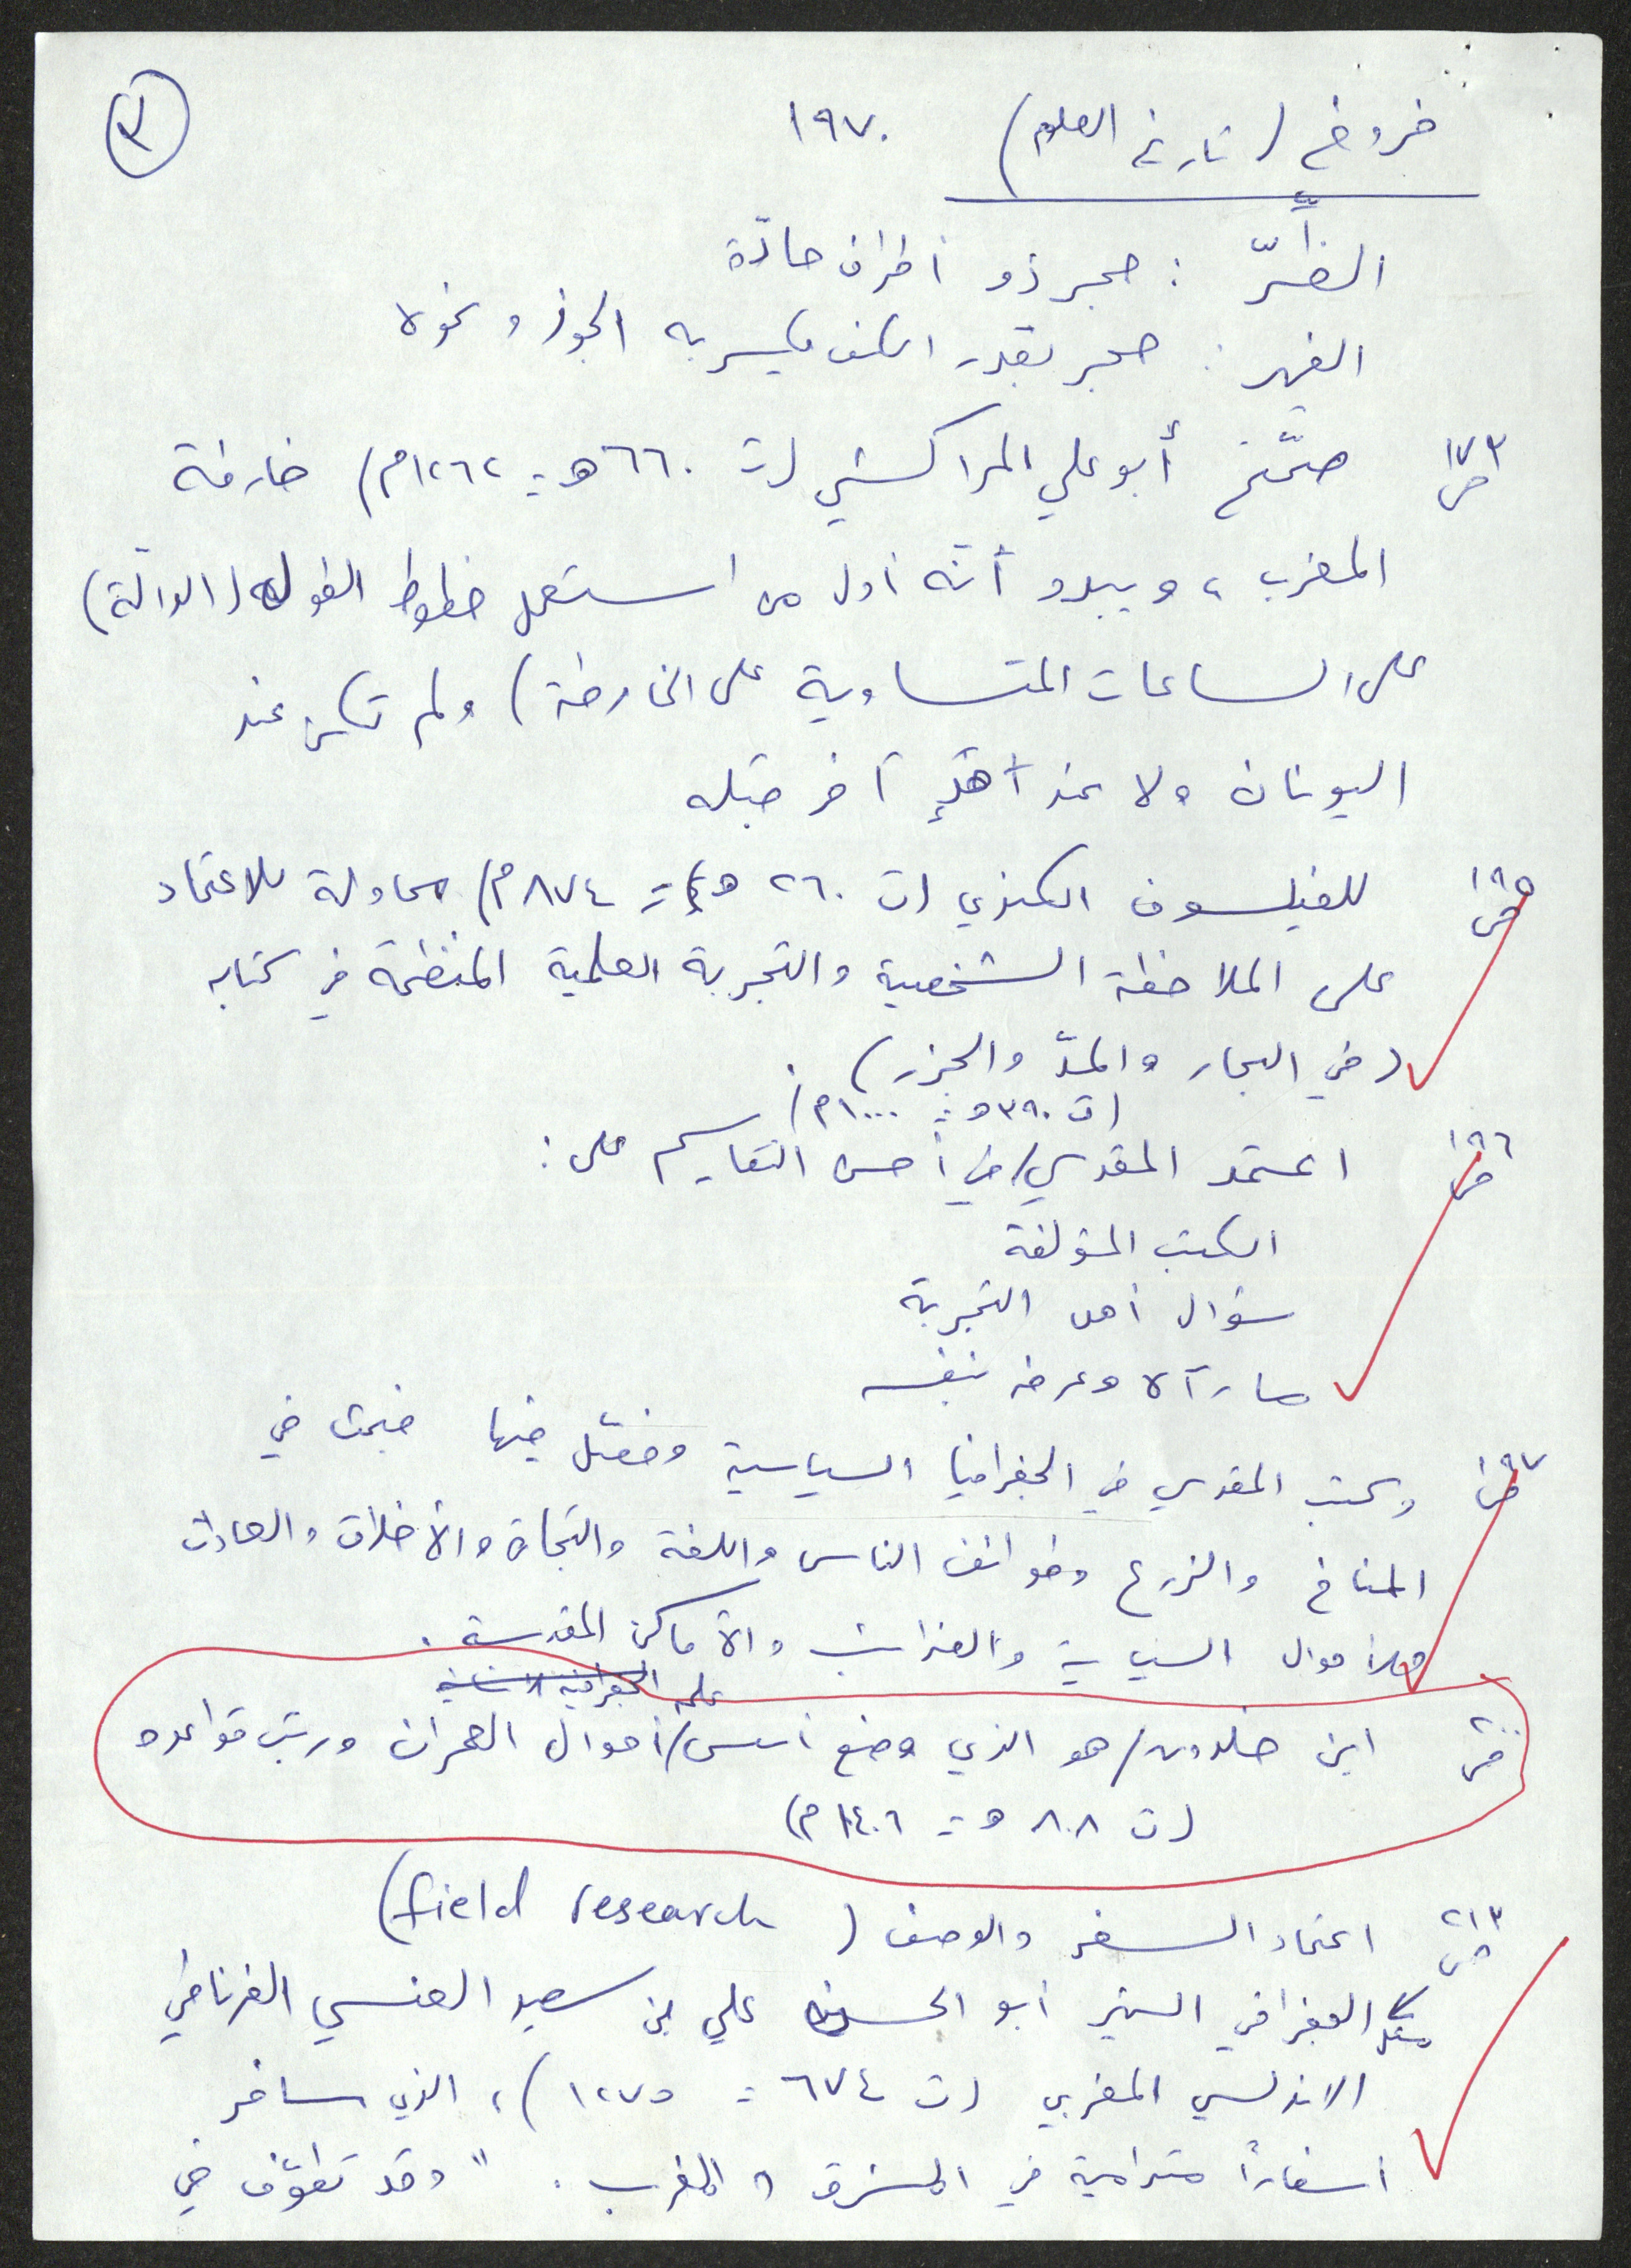 ٣
فروخ (تاريخ العلوم) ١٩٧٠
الظرّ : حجر ذو أطراف حادّة
الفهر : حجر بقدر الكف يكسر به الجوز ونحوه
ص ١٧٣ صحّح أبو علي المراكشي (ت ٦٦٠ هـ = ١٢٦٢م) خارطة
المغرب ، ويبدو أنّه أول من استعمل خطوط الطول (الدالّة)
على الساعات المتساوية على الخارطة) ولم تكن عند
اليونان ولا عند أحدٍ آخر قبله
ص ١٩٥ للفيلسوف الكندي (ت ٢٦٠ هـ = ٨٧٤م) محاولة للاعتماد
على الملاحظة الشخصية والتجربة العلمية المنظمة في كتابه
(في البحار والمدّ والجزر) .
(ت ٣٩٠هـ = ١٠٠٠م)
ص ١٩٦ اعتمد المقدسي/ في أحسن التقاسيم على :
الكتب المؤلفة
سؤال أهل التجربة
ما رآه وعرفه بنفسه
ص ١٩٧ وكتب المقدسي في الجغرافيا السياسية وفصّل فيها فبحث في
المناخ والزرع وطوائف الناس واللغة والتجارة والأخلاق والعادات
والأحوال السياسية والضرائب والأماكن المقدسة .
علم الجغرافية الانسانية
ص ٢٠٠ ابن خلدون/ هو الذي وضع أسس/ أحوال العمران ورتب قواعده
(ت ٨٠٨ هـ = ١٤٠٦م)
ص ٢١٣ اعتماد السفر والوصف (field research)
الجغرافي الشهير أبو الحسن علي بن سعيد العنسي الغرناطي
الاندلسي المغربي (ت ٦٧٤ = ١٢٧٥) ، الذي سافر
أسفاراً مترامية في المشرق والمغرب . " وقد تطوّف في